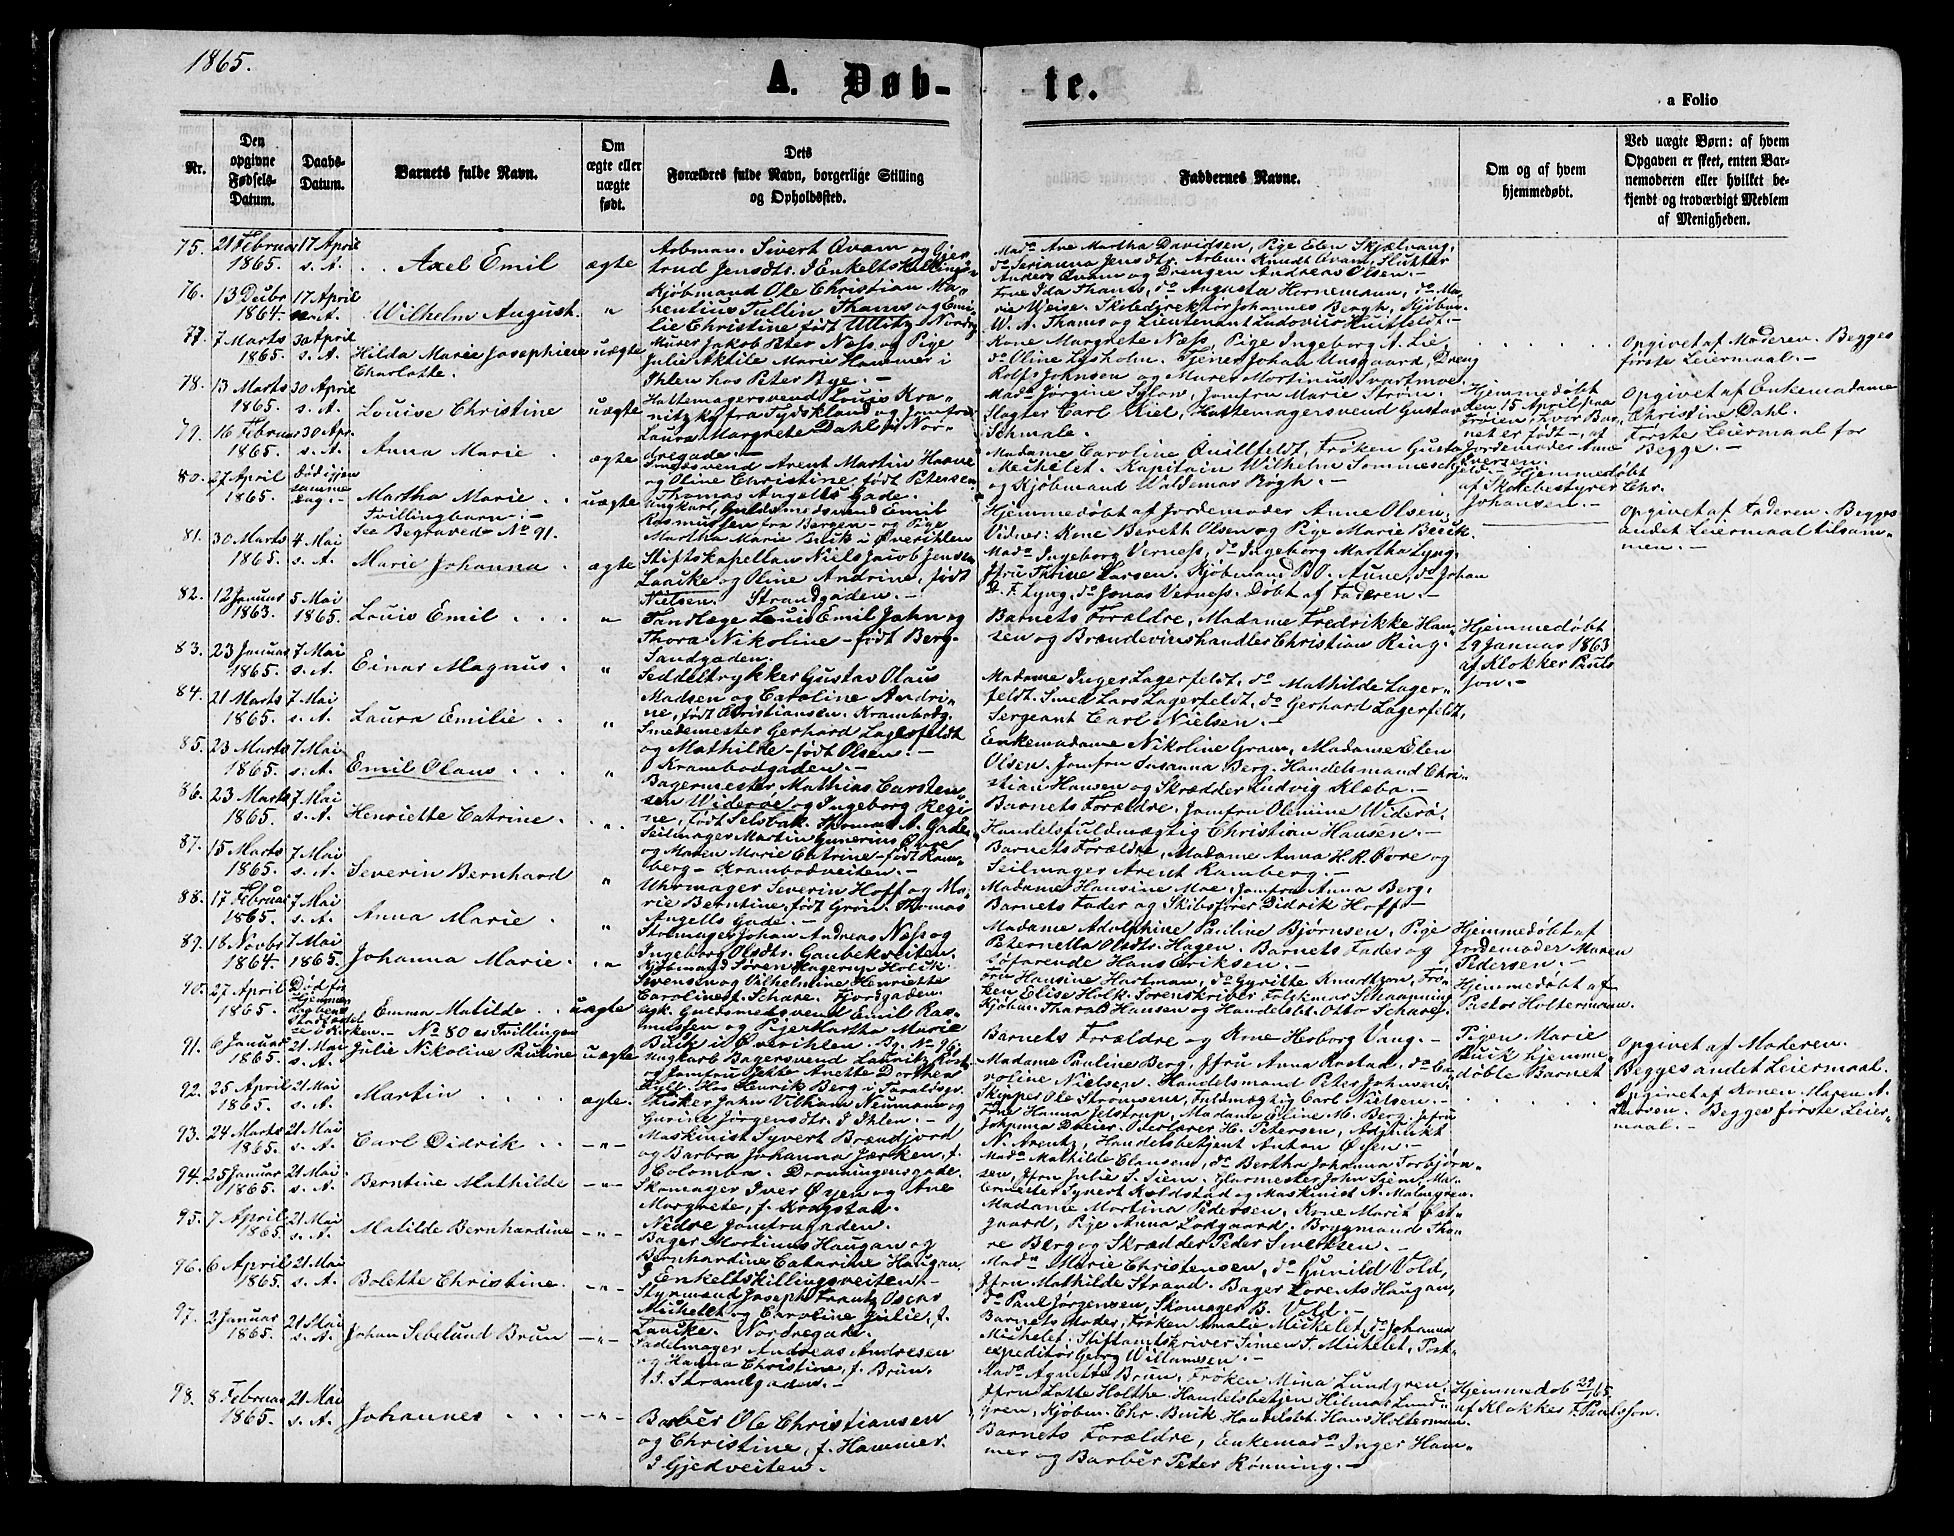 1865.
A. Døb-
te.
a Folio
Nr.
Den opgivne Fødsels-Datum.
Daabs-Datum.
Barnets fulde Navn.
Om ægte eller uægte født.
Dets Forældres fulde Navn, borgerlige Stilling og Opholdssted.
Faddernes Navne.
Om og af hvem hjemmedøbt.
Ved uægte Børn: af hvem Opgaven er skeet, enten Barnemoderen eller hvilket bekjendt og troværdigt Medlem af Menigheden.
75. 21 Februar 1865. 17 April s. A. Axel Emil ægte
Arbman. Sivert Qvam og Gjer-
trud Jensdtr. I Enkeltskilling
Mad. Ane Martha Davidsen, Pige Elen Skjælvang,
do Serianna Jensdtr. Arbm. Knudt Qvam, Slutter
Anders Qvam og Drengen Andreas Olsen.-
76. 13 Decbr 1864. 17 April s. A. Wilhelm August. "
Kjøbmand Ole Christian Ma-
rentius Tullin Thams og Emi-
lie Christine født Ullitz. Nordrg
Frue Ida Thams, do Augusta Hornemann, do Ma-
rie Weise. Skoledirektør Johannes Bergh, Kjøbm.
W. A. Thams og Lieutenant Ludovius Huitfeldt.-
77. 7 Marts 1865. 30 April s. A. Hilda Marie Josephine Charlotte. uægte
Murer Jakob Peter Næss og Pige
Julie Aktile Marie Hammer i
Ihlen hos Peter Bye.-
Kone Margrete Næss, Pige Ingeborg A. Lie,
do Oline Løsholm. Tjener Johan Unsgaard, Dreng
Rolf Johnsen og Murer Mortinus Svartmoe.
Opgivet af Moderen. Begges
første Leiermaal.-
78. 13 Marts 1865. 30 April s. A. Louise Christine uægte
Hattemagersvend Louis Kra-
nitzky fra Tydskland og Jomfru
Laura Margrete Dahl i Nor-
dregade.-
Mad. Jørgine Sylow, Jomfru Marie Strøm.
Slagter Carl Kiel, Hattemagersvend Gustav
Schmale.
Hjemmedøbt
den 15 April paa
Frøien, hvor Bar-
net er født-, af
Jordemoder Anne
Iversen.
Opgivet af Enkemadame
Christine Dahl.
Første Leiermaal for
Begge.-
79. 16 Februar 1865. 30 Apr. s. A. Anna Marie ægte
Smedsvend Arent Martin Haave
og Oline Christine født Petersen.
Thomas Angells Gade.
Madame Caroline Quillfeldt, Frøken Gusta
Michelet. Kapitain Wilhelm Sommersch-
feld og Kjøbmand Waldemar Bøgh.-
Hjemmedøbt
af Skolebestyrer
Chr.
Johansen.-
80. 27 April 1865. Død igjen samme Dag.- Martha Marie Tvillingbarn:- See Begravede No 91. uægte
Ungkarl, Guldsmedsvend Emil
Rasmussen fra Bergen- og Pige
Martha Marie Buik i Øvreihlen
Hjemmedøbt af Jordemoder Anne Olsen,
Vidner: Kone Bereth Olsen og Pige Marie Beuck.
Opgivet af Faderen. Begges
andet Leiermaal tilsam-
men.-
81. 30 Marts 1865. 4 Mai s. A. Marie Johanna ægte
Stiftskapellan Niels Jacob Jensen
Laache og Oline Andrine, født
Nielsen. Strandgaden.-
Mad. Ingeborg Verness, do Ingeborg Martha Lyng,
Jfru Thrine Larsen. Kjøbmand P. O. Aune, do Johan
D. F. Lyng, do Jonas Verness. Døbt af Faderen.-
82. 12 Januar 1863. 5 Mai 1865. Louis Emil "
Tandlæge Louis Emil Jahn og
Thora Nikoline- født Berg.
Sandgaden.
Barnets Forældre, Madame Fredrikke Han-
sen og Brændevinshandler Christian Ring.
Hjemmedøbt
29 Januar 1863
af Klokker Pauls-
son.-
83. 23 Januar 1865. 7 Mai s. A. Einar Magnus. "
Seddeltrykker Gustav Olaus
Madsen og Caroline Andri-
ne, født Christiansen. Krambodg.
Madame Inger Lagerfeldt, do Mathilde Lager-
feldt. Smed Lars Lagerfeldt, do Gerhard Lagerfeldt,
Sergeant Carl Nielsen.-
84. 21 Marts 1865. 7 Mai s. A. Laura Emilie "
Smedemester Gerhard Lagerfeldt
og Mathilde- født Olsen.-
Krambodgaden.-
Enkemadame Nikoline Gram, Madame Elen
Olsen, Jomfru Susanna Berg. Handelsmand Chri-
stian Hansen og Skrædder Ludvig Klæbo.-
85. 23 Marts 1865. 7 Mai s. A. Emil Olaus "
Bagermester Mathias Carsten-
sen Widerøe og Ingeborg Regi-
ne, født Selsbak. Thomas A. Gade
Barnets Forældre, Jomfru Olemine Widerø,
Handelsfuldmægtig Christian Hansen.-
86. 23 Marts 1865. 7 Mai s. A. Henriette Catrine. "
Seilmager Martin Gunerius Øvre
og Maren Marie Catrine- født Ram-
berg- Krambodveiten.-
Barnets Forældre, Madame Anna H. R. Øvre og
Seilmager Arent Ramberg.-
87. 15 Marts 1865. 7 Mai s. A. Severin Bernhard "
Uhrmager Severin Hoff og Ma-
rie Berntine, født Grøn. Thomas
Angells Gade.-
Madame Hansine Moe, Jomfru Anna Berg,
Barnets Fader og Skibsfører Didrik Hoff.-
88. 17 Februar 1865. 7 Mai s. A. Anna Marie "
Skomager Johan Andreas Næss og
Ingeborg Olsdtr. Gaubekveiten.
Madame Adolphine Pauline Bjørnsen, Pige
Peternella Olsdtr. Hagen. Barnets Fader og
Søfarende Hans Eriksen.-
Hjemmedøbt af
Jordemoder Maren
Pedersen.-
89. 18 Novbr 1864. 7 Mai 1865. Johanna Marie. "
Kjøbmand Søren Hagerup Holck
Svensen og Vilhelmine Henriette
Caroline f. Schare. Fjordgaden.
Fru Hansine Hartman, do Gyritte Knudtzon, Frø-
ken Elise Holk. Sorenskriver Folckmar Schaanning
Kjøbm. Tharald Hansen og Handelsbet. Otto Schare.
Hjemmedøbt af
Pastor Holtermann.
90. 27 April 1865. Død før Hjemmedaabens Stadfæstelse i Kirken.- No 80 er Tvillingen Emma Matilde uægte
Ugk. Guldsmedsvend Emil Ras-
mussen og Pige Martha Marie
Buik i Øvreihlen. Bg. No 96.
Barnets Forældre og Kone Herborg Vang.-
Pigen Marie
Buik hjemme-
døbte Barnet
91. 6 Januar 1865. 21 Mai s. A. Julie Nikoline Pauline uægte
Ungkarl Bagersvend Lauritz Rost
og Jomfru Jette Anette Dorthea
Lyll. Hos Henrik Berg i Taraldsgv.
Madame Pauline Berg, Jfru Anna Rostad, do Ca-
roline Nielsen. Handelsmand Peter Johnsen,
Skipper Ole Strømsøens, Fuldmægtig Carl Nielsen.-
Opgivet af Moderen.
Begges andet Leiermaal.
92. 25 April 1865. 21 Mai s. A. Martin ægte.
Fisker John Vilhem Neumann og
Gurine Jørgensdtr. I Ihlen.-
Frue Hanna Jelstrup, Madame Eline M. Berg, Jofru
Johanna Dreier. Overlærer H. Petersen, Adjunkt
N. Arentz, Handelsbetjent Anton Øyen.-
Opgivet af Konen Maren A.
Larsen. Begges første Leier-
maal.-
93. 24 Marts 1865. 21 Mai s. A. Carl Didrik -"-
Maskinist Syvert Brændfjord
og Barbra Johanna Jærken, f.
Colomba. Dronningensgade.
Mad. Mathilde Clausen, do Bertha Johanna Torbjørn-
sen, Jfru Julie S. Siem. Glarmester John Siem, Ma-
lermester Syvert Koldstad og Maskinist A. Malmgren.
94. 25 Januar 1865. 21 Mai s. A. Berntine Mathilde -"-
Skomager Iver Øyen og Ane
Margrete, f. Krogstad.
Nedre Jomfrugaden.
Madame Martina Pedersen, Kone Maria Øst-
gaard, Pige Anna Lodgaard. Brygmand Tho-
re Berg og Skrædder Peder Sivertsen.-
95. 7 April 1865. 21 Mai s. A. Matilde Bernhardine -"-
Bager Mortinus Haugan og
Bernhardine Catarine Haugan,
I Enkeltskillingsveiten.-
Mad. Marie Christensen, do Gunild Vold,
Jfru Mathilde Strand. Bager Lorents Haugan,
do Paul Jørgensen, Skomager B. Vold.-
96. 6 April 1865. 21 Mai s. A. Bolette Christine. -"-
Styrmand Joseph Frantz Oscar
Michelet og Caroline Julie, f.
Laache. Nordregade.
Barnets Moder, Frøken Amalie Michelet, do Johanna
Michelet. Stiftamtskriver Simen T. Michelet, Post-
expeditør Georg Willumsen.-
97. 2 Januar 1865. 21 Mai s. A. Johan Sebelund Brun -"-
Sadelmager Andreas Andresen
og Hanna Christine, f. Brun.
I Strandgaden.-
Mad. Agnette Brun, Frøken Mina Lundgren,
Jfru Lotte Holthe. Handelsbetjen Hilmar Lund-
gren, Kjøbm. Chr. Buck, Handelsbt. Hans Holterman.
Hjemmedøb 29/1 65.
af Klokker F. Paulsson.
98. 8 Februar 1865. 21 Mai s. A. Johannes -"-
Barbér Ole Christiansen
og Christine, f. Hammer.
I Gjedveiten.
Barnets Forældre, Enkemad. Inger Ham-
mer og Barbér Peter Rønning.-